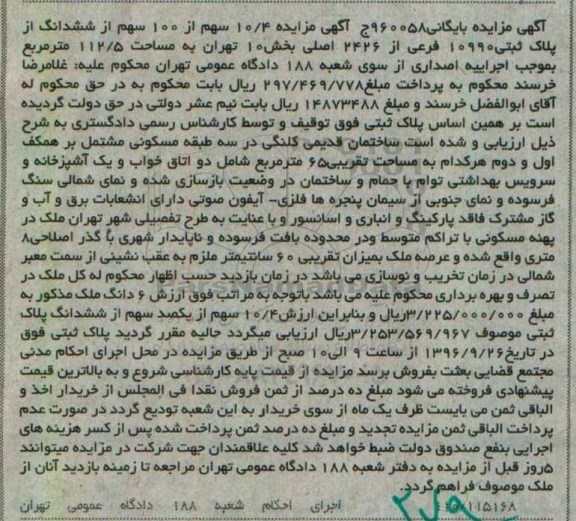 آگهی مزایده بایگانی۹۶۰۰۵۸ج آگهی مزایده ۱۰/۴ سهم از ۱۰۰ سهم از ششدانگ از
پلاک ثبتی۱۰۹۹۰ فرعی از ۲۴۲۶ اصلی بخش۱۰ تهران به مساحت ۱۱۲/۵ مترمربع
بموجب اجراییه اصداری از سوی شعبه ۱۸۸ دادگاه عمومی تهران محکوم علیه: غلامرضا
خرسند محکوم به پرداخت مبلغ۲۹۷/۴۶۹/۷۷۸ ریال بابت محکوم به در حق محکوم له
آقای ابوالفضل خرسند و مبلغ ۱۴۸۷۳۴۸۸ ریال بابت نیم عشر دولتی در حق دولت گردیده
است بر همین اساس پلاک ثبتی فوق توقیف و توسط کارشناس رسمی دادگستری به شرح
ذیل ارزیابی و شده است ساختمان قدیمی کلنگی در سه طبقه مسکونی مشتمل بر همکف
اول و دوم هرکدام به مساحت تقریبی۶۵ مترمربع شامل دو اتاق خواب و یک آشپزخانه و
سرویس بهداشتی توام با حمام و ساختمان در وضعیت بازسازی شده و نمای شمالی سنگ
فرسوده و نمای جنوبی از سیمان پنجره ها فلزی- آیفون صوتی دارای انشعابات برق و آب و
گاز مشترک فاقد پارکینگ و انباری و آسانسور و با عنایت به طرح تفصیلی شهر تهران ملک در
پهنه مسکونی با تراکم متوسط ودر محدوده بافت فرسوده و ناپایدار شهری با گذر اصلاحی۸
متری واقع شده و عرصه ملک بمیزان تقریبی ۶۰ سانتیمتر ملزم به عقب نشینی از سمت معبر
شمالی در زمان تخریب و نوسازی می باشد در زمان بازدید حسب اظهار محکوم له کل ملک در
تصرف و بهره برداری محکوم علیه می باشد باتوجه به مراتب فوق ارزش ۶ دانگ ملک مذکور به
مبلغ ۳/۲۲۵/۰۰۰/۰۰۰ریال و بنابراین ارزش۱۰/۴ سهم از یکصد سهم از ششدانگ پلاک
ثبتی موصوف ۳/۲۵۳/۵۶۹/۹۶۷ریال ارزیابی میگردد حالیه مقرر گردید پلاک ثبتی فوق
در تاریخ۱۳۹۶/۹/۲۶ از ساعت ۹ الی۱۰ صبح از طریق مزایده در محل اجرای احکام مدنی
مجتمع قضایی بعثت بفروش برسد مزایده از قیمت پایه کارشناسی شروع و به بالاترین قیمت
پیشنهادی فروخته می شود مبلغ ده درصد از ثمن فروش نقدا فی المجلس از خریدار اخذ و
الباقی ثمن می بایست ظرف یک ماه از سوی خریدار به این شعبه تودیع گردد در صورت عدم
پرداخت الباقی ثمن مزایده تجدید و مبلغ ده درصد ثمن پرداخت شده پس از کسر هزینه های
اجرایی بنفع صندوق دولت ضبط خواهد شد کلیه علاقمندان جهت شرکت در مزایده میتوانند
۵روز قبل از مزایده به دفتر شعبه ۱۸۸ دادگاه عمومی تهران مراجعه تا زمینه بازدید آنان از
ملک موصوف فراهم گردد.
۱۱۵۱۶۸ اجرای احکام شعبه ۱۸۸ دادگاه عمومی تهران